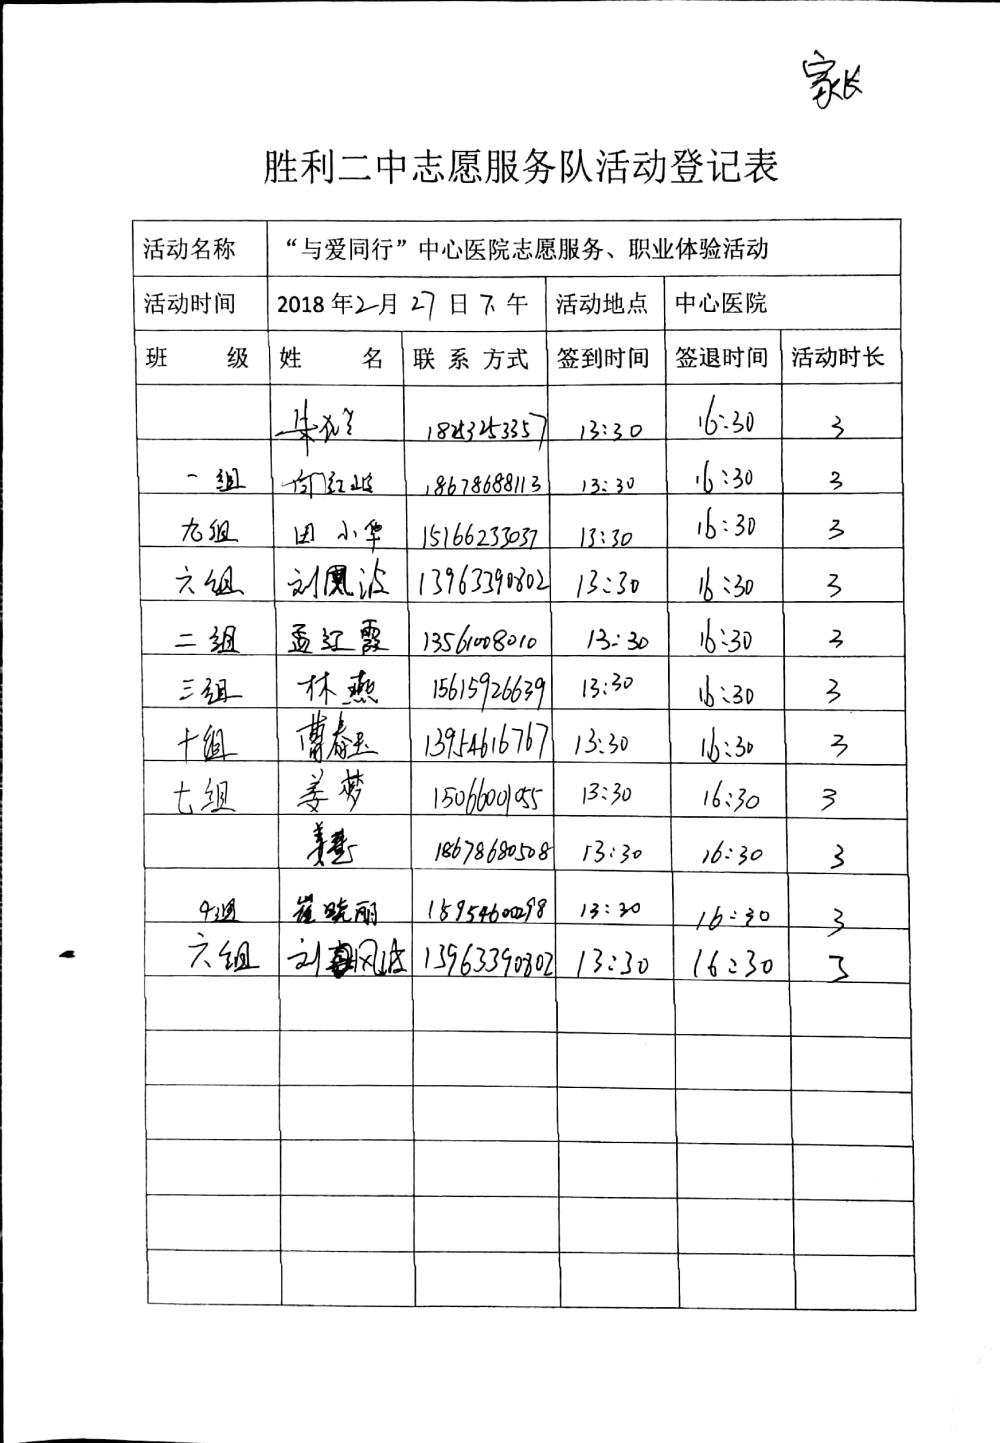 家长
胜利二中志愿服务队活动登记表
活动名称 “与爱同行”中心医院志愿服务、职业体验活动
活动时间 2018年2月27日下午 活动地点 中心医院
班 级 姓 名 联系方式 签到时间 签退时间 活动时长
13:30 16:30 3
一组 18678688113 13:30 16:30 3
九组 田小华 15166233037 13:30 16:30 3
六组 刘凤波 13963390802 13:30 16:30 3
二组 孟红霞 13561008010 13:30 16:30 3
三组 林燕 15615926639 13:30 16:30 3
十组 曹春玉 13954616767 13:30 16:30 3
七组 姜梦 15066001955 13:30 16:30 3
18678680508 13:30 16:30 3
4组 崔晓丽 15954600298 13:30 16:30 3
六组 刘风波 13963390802 13:30 16:30 3